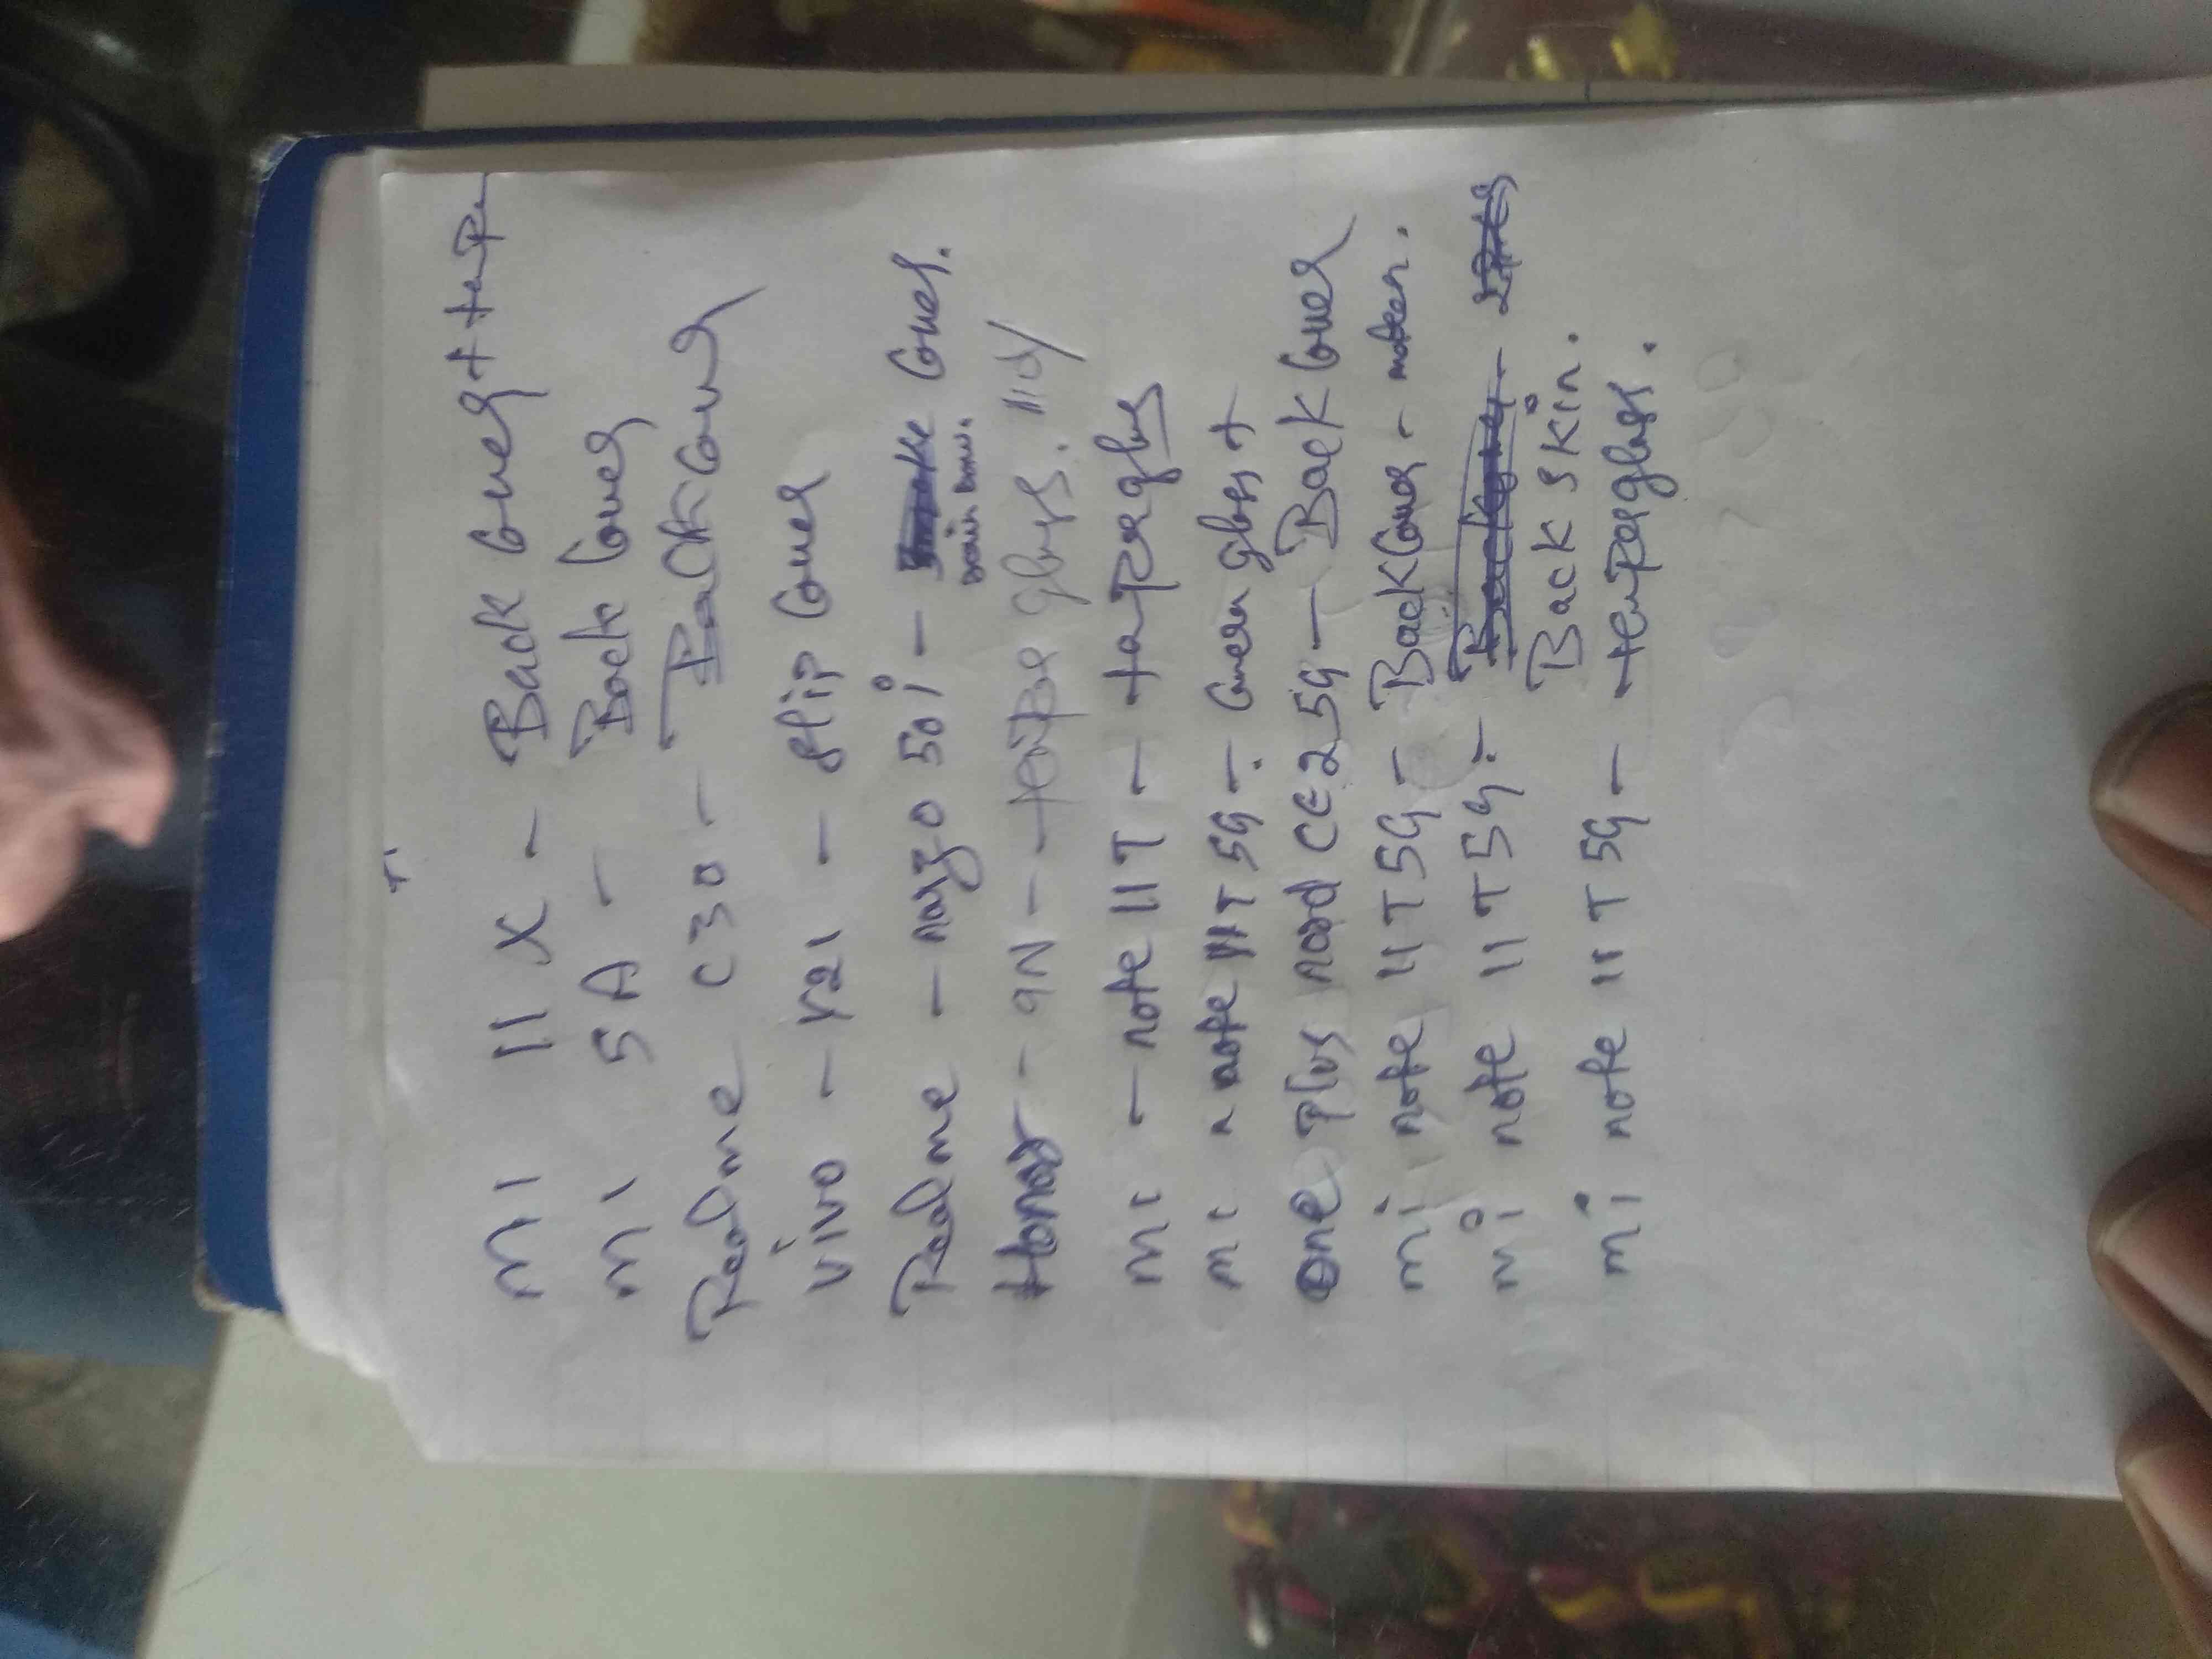 MI 11 X - Back Cover + temp
MI 5A - Back Cover
Realme C30 - Back Cover
Vivo - Y21 - flip Cover
Realme - narzo 50i - Cover.
Honor - 9N - glass.
MI - note 11T -
MI note 11T 5G -
One Plus nord CE 2 5G - Back Cover
mi note 11 T 5G - Back Cover -
mi note 11 T 5G -
Back skin.
mi note 11 T 5G - temperglass.